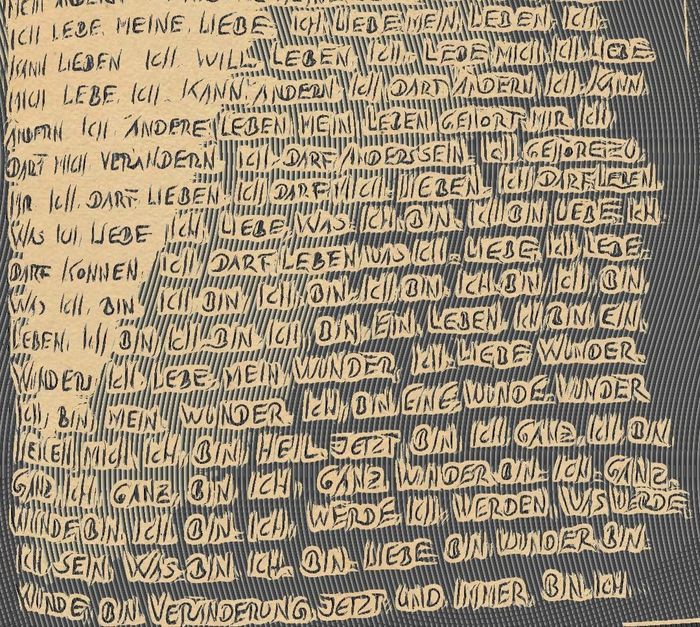 ICH LEBE MEINE LIEBE. ICH LIEBE MEIN LEBEN. ICH
KANN LIEBEN ICH WILL LEBEN. ICH LEBE MICH. ICH LIEBE
MICH LEBE. ICH KANN ÄNDERN ICH DARF ÄNDERN ICH KANN
ÄNDERN ICH ÄNDERE LEBEN MEIN LEBEN GEHÖRT MIR ICH
DARF MICH VERÄNDERN ICH DARF ANDERS SEIN. ICH GEHÖRE ZU
MIR ICH DARF LIEBEN ICH DARF MICH LIEBEN. ICH DARF LEBEN
WAS ICH LIEBE ICH LIEBE WAS ICH BIN. ICH BIN LIEBE ICH
DARF KÖNNEN. ICH DARF LEBEN WAS ICH LIEBE ICH LEBE.
WAS ICH BIN ICH BIN ICH BIN ICH BIN ICH BIN ICH BIN
LEBEN. ICH BIN ICH BIN ICH BIN EIN LEBEN ICH BIN EIN
WUNDER. ICH LEBE MEIN WUNDER ICH LIEBE WUNDER.
ICH BIN MEIN WUNDER. ICH BIN EINE WUNDE. WUNDER
HEILEN MICH ICH BIN HEIL JETZT BIN ICH GANZ. ICH BIN
GANZ ICH GANZ BIN ICH. GANZ WUNDER BIN ICH GANZ
WUNDE BIN ICH BIN ICH. WERDE ICH WERDEN WAS WERDE
ICH SEIN WAS BIN ICH BIN LIEBE BIN WUNDER BIN
WUNDE BIN VERÄNDERUNG JETZT UND IMMER BIN ICH